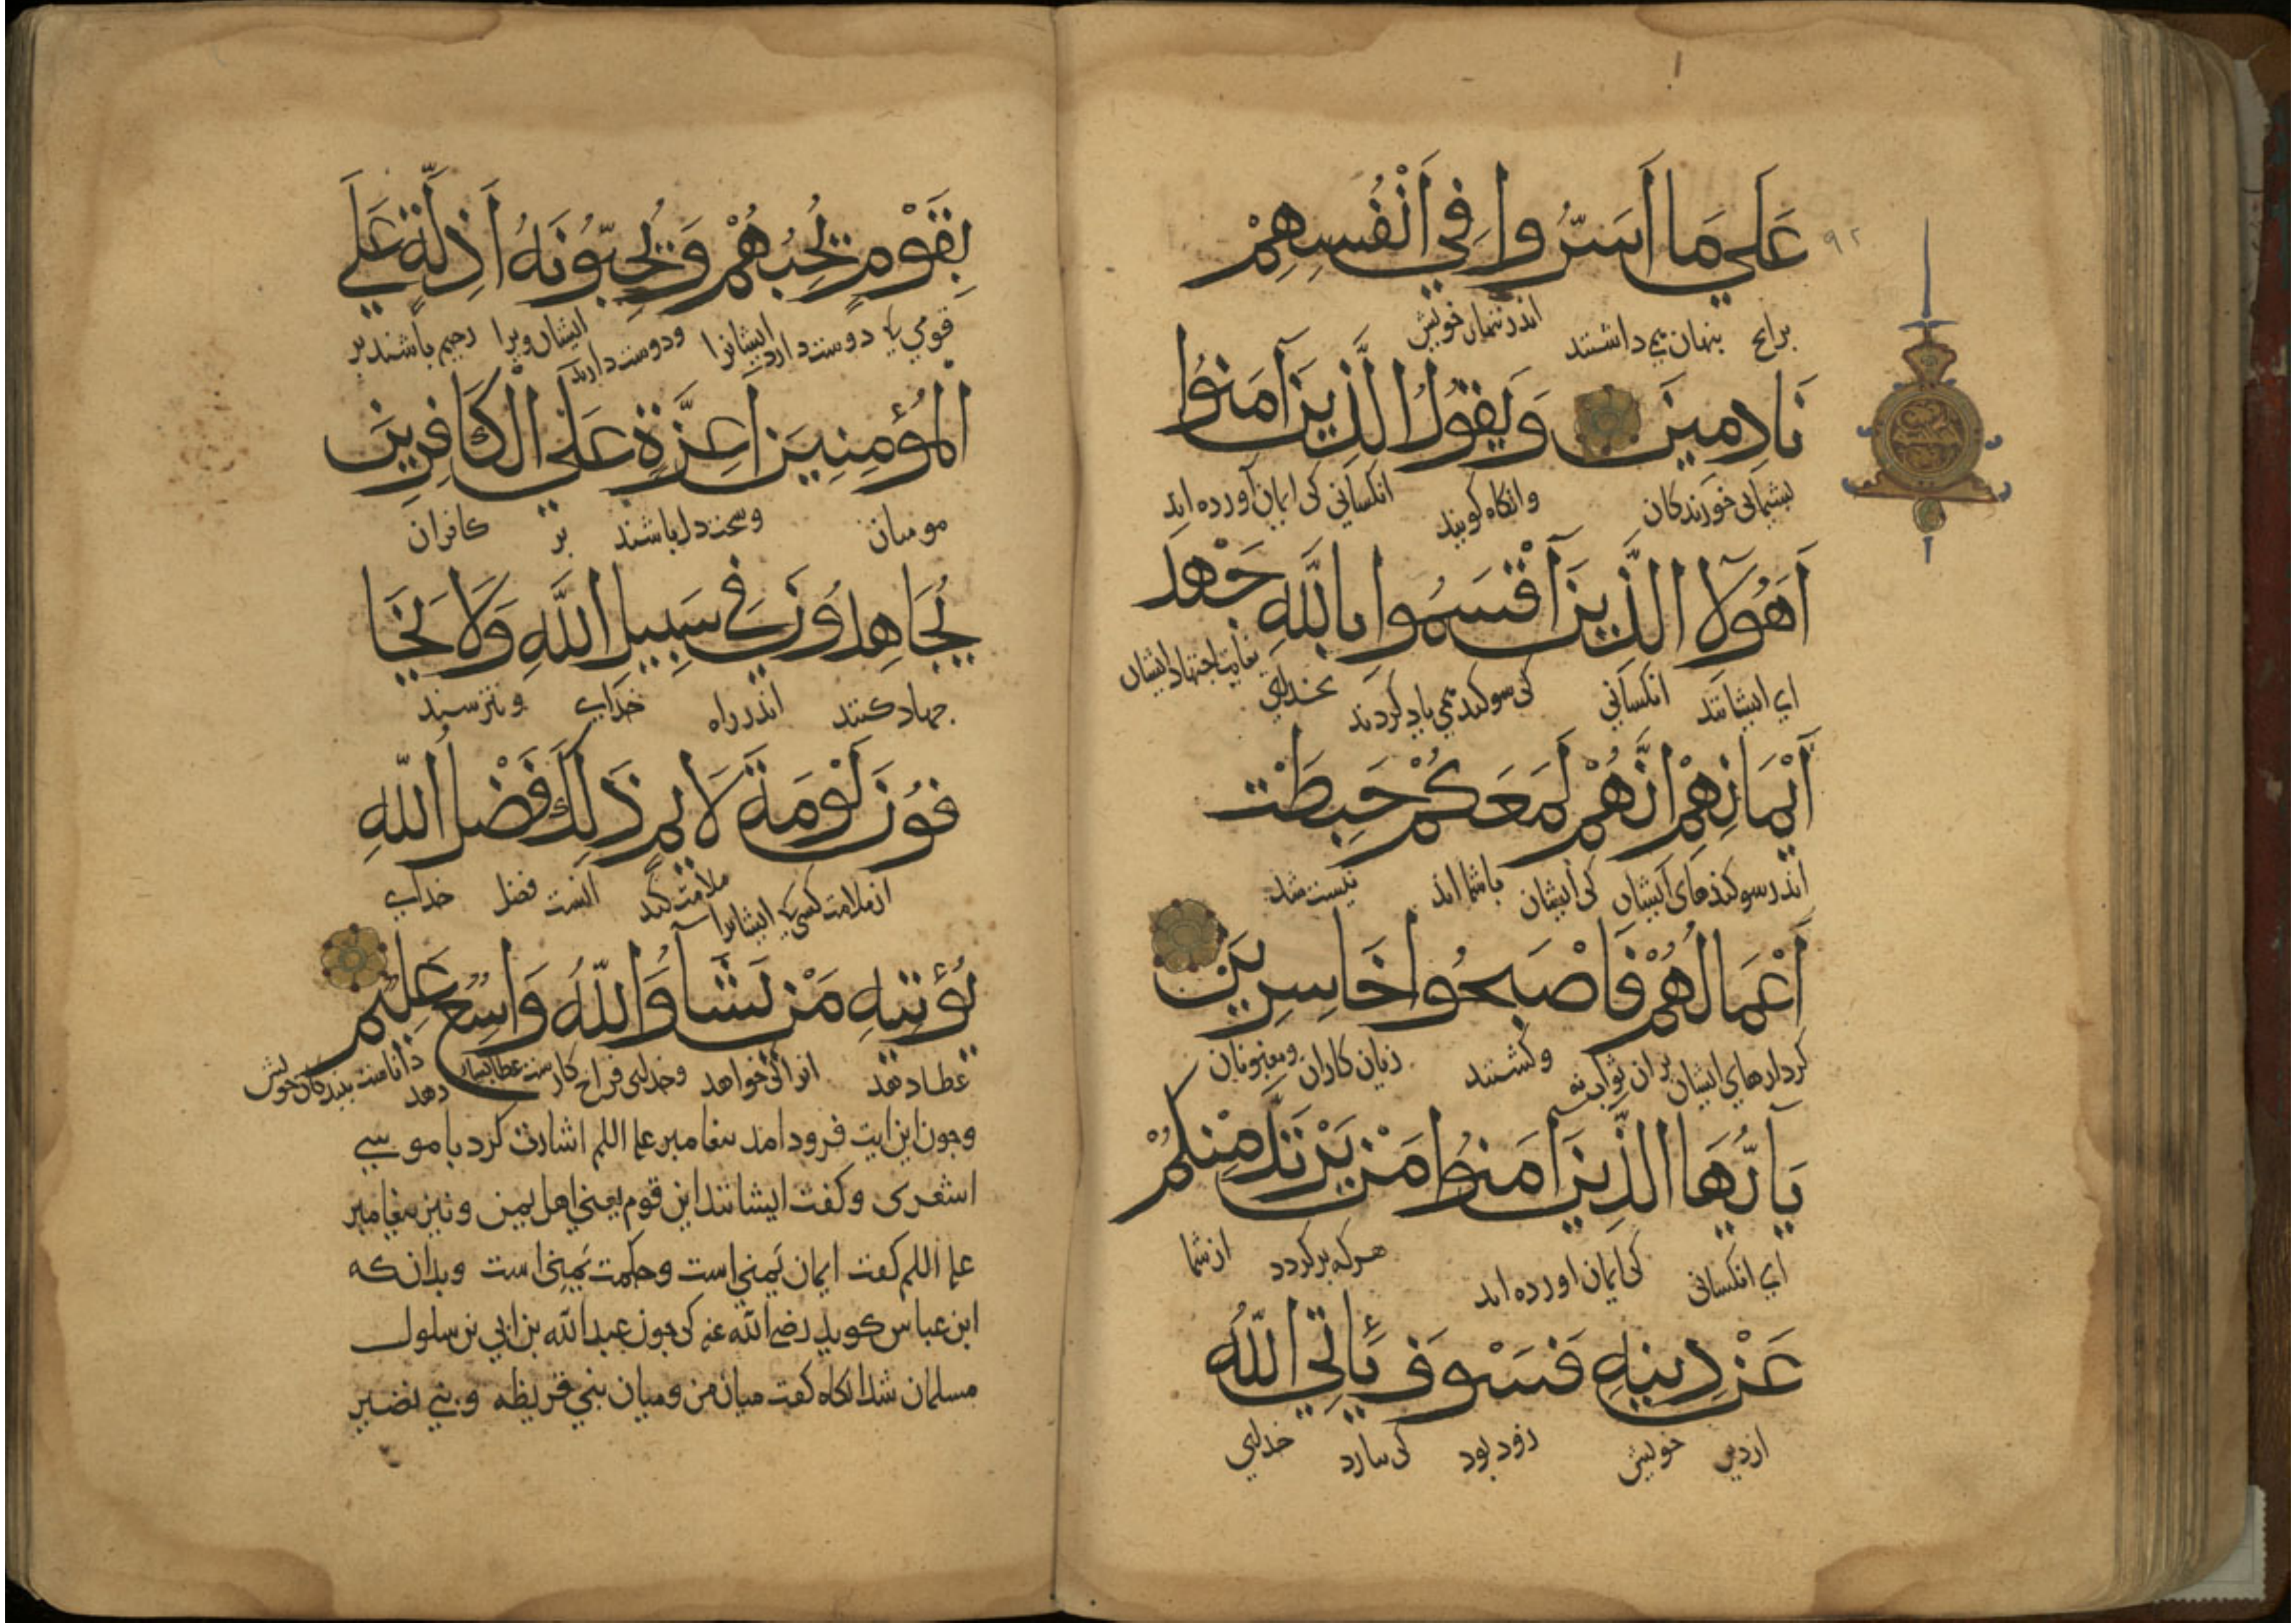 عَلَي مَا اَسَرُّوا فِي اَنْفُسِهِمْ
۹۲
برانچ پنهان می داشتند اندر تنهاں خویش
نَادِمِينَ وَيَقُولُ الَّذِينَ آمَنُوا
بشیمانی خورندکان وانکاه کویند انکسانی کی ایمان آورده اند
اَهَؤُلَآ الَّذِينَ اَقْسَمُوا بِاللَّهِ جَهْدَ
ای ایشانند انکسانی کی سوکند می یاد کردند بخدای بغایت اجتهاد ایشان
اَيْمَانِهِمْ اِنَّهُمْ لَمَعَكُمْ حَبِطَتْ
اندر سوکندهای ایشان کی ایشان باشما اند نیست شد
اَعْمَالُهُمْ فَاَصْبَحُوا خَاسِرِينَ
کردارهای ایشان بران ثواب نه وکشتند زیان کاران ومغبونان
يَآ اَيُّهَا الَّذِينَ آمَنُوا مَنْ يَرْتَدَّ مِنْكُمْ
ای انکسانی کی ایمان اورده اند هرکه برکردد از شما
عَنْ دِينِهِ فَسَوْفَ يَأتِي اللَّهُ
از دین خویش زود بود کی بیارد خدای
بِقَوْمٍ يُحِبُّهُمْ وَيُحِبُّونَهُ اَذِلَّةٍ عَلَي
قومی را دوست دارد ایشانرا ودوست دارند ایشان ویرا رحیم باشند بر
الْمُؤْمِنِينَ اَعِزَّةٍ عَلَي الْكَافِرِينَ
مومنان وسخت دل باشند بر کافران
يُجَاهِدُونَ فِي سَبِيلِ اللَّهِ وَلَا يَخَا
جهاد کنند اندر راه خدای ونترسند
فُونَ لَوْمَةَ لَايِمٍ ذَلِكَ فَضْلُ اللَّهِ
از ملامت کسی ایشانرا ملامت کند انست فضل خدای
يُؤْتِيهِ مَنْ يَشَآ وَاللَّهُ وَاسِعٌ عَلِيمٌ
عطا دهد انرا کی خواهد وخدای فراخ کارست عطا بسیار دهد داناست ببندکان خویش
وجون این ایت فرود امد بیغامبر علیه السلم اشارت کرد با موسی
اشعری وکفت ایشانند این قوم یعنی اهل یمن ونیز بیغامبر
علیه السلم کفت ایمان یمنی است وحکمت یمنی است وبدانکه
ابن عباس کوید رضی الله عنه کی جون عبد الله بن ابی بن سلول
مسلمان شد انکاه کفت میان من ومیان بنی قریظه وبنی نضیر